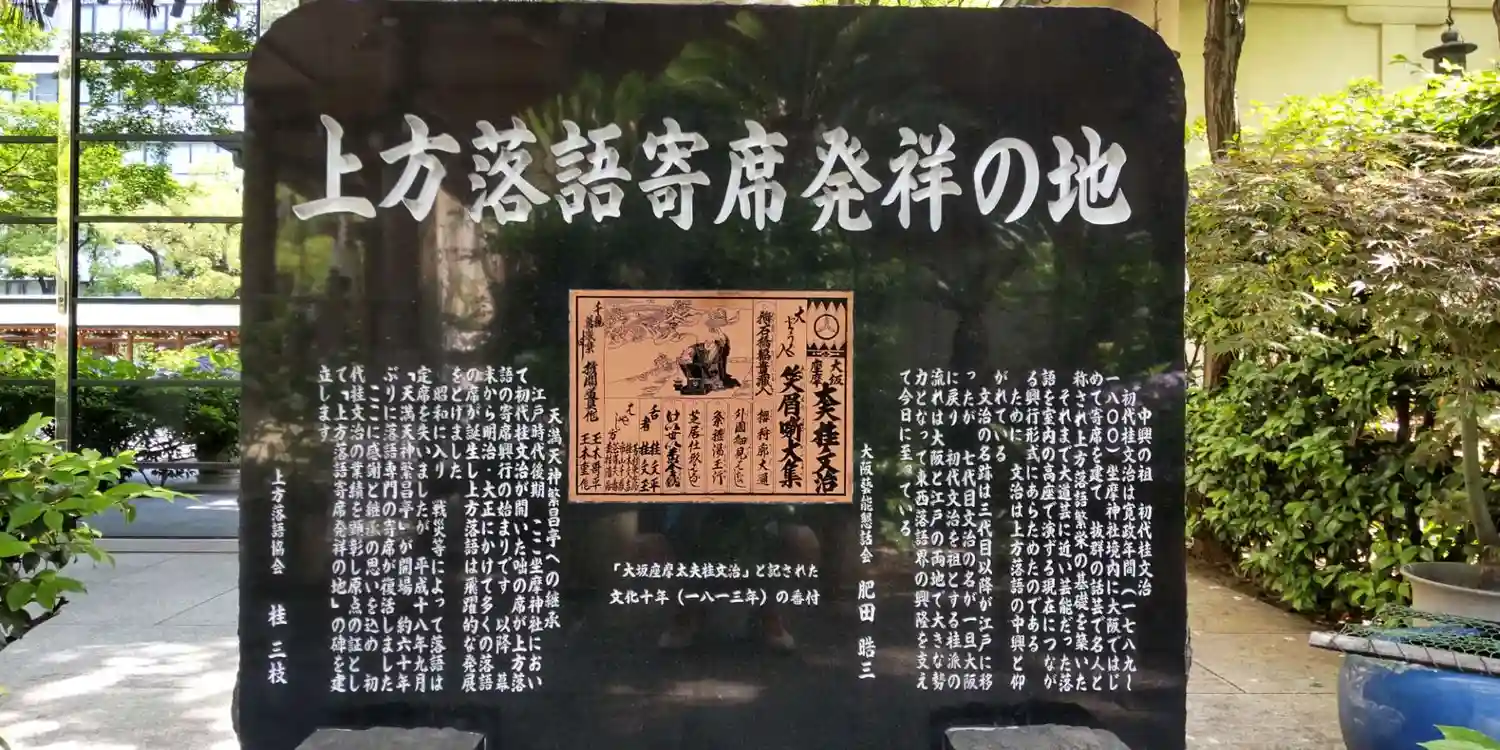 上方落語寄席発祥の地
中興の祖 初代桂文治
初代桂文治は寛政年間(一七八九~
一八〇〇)坐摩神社境内に大阪ではじ
めて寄席を建て 抜群の話芸で名人と
称され上方落語繁栄の基礎を築いた
それまで大道芸に近い芸能だった落
語を室内の高座で演する現在につなが
る興行形式にあらためたのである
ために 文治は上方落語の中興と仰
がれている
文治の名跡は三代目以降が江戸に移
ったが 七代目文治の名が一旦大阪
に戻り 初代文治を祖とする桂派の
流れは大阪と江戸の両地で大きな勢
力となって東西落語界の興隆を支え
て今日に至っている
大阪藝能懇話会 肥田晧三
大坂
座摩
太夫桂文治
笑屑噺大集
「大坂座摩太夫桂文治」と記された
文化十年(一八一三年)の番付
天満天神繁昌亭への継承
江戸時代後期 ここ坐摩神社におい
て初代桂文治が開いた咄の席が上方落
語の寄席興行の始まりです 以降 幕
末から明治・大正にかけて多くの落語
の席が誕生し上方落語は飛躍的な発展
をとげました
昭和に入り 戦災等によって落語は
定席を失いましたが 平成十八年九月
「天満天神繁昌亭」が開場 約六十年
ぶりに落語専門の寄席が復活しました
ここに感謝と継承の思いを込め 初
代桂文治の業績を顕彰し原点の証とし
て「上方落語寄席発祥の地」の碑を建
立します
上方落語協会 桂三枝